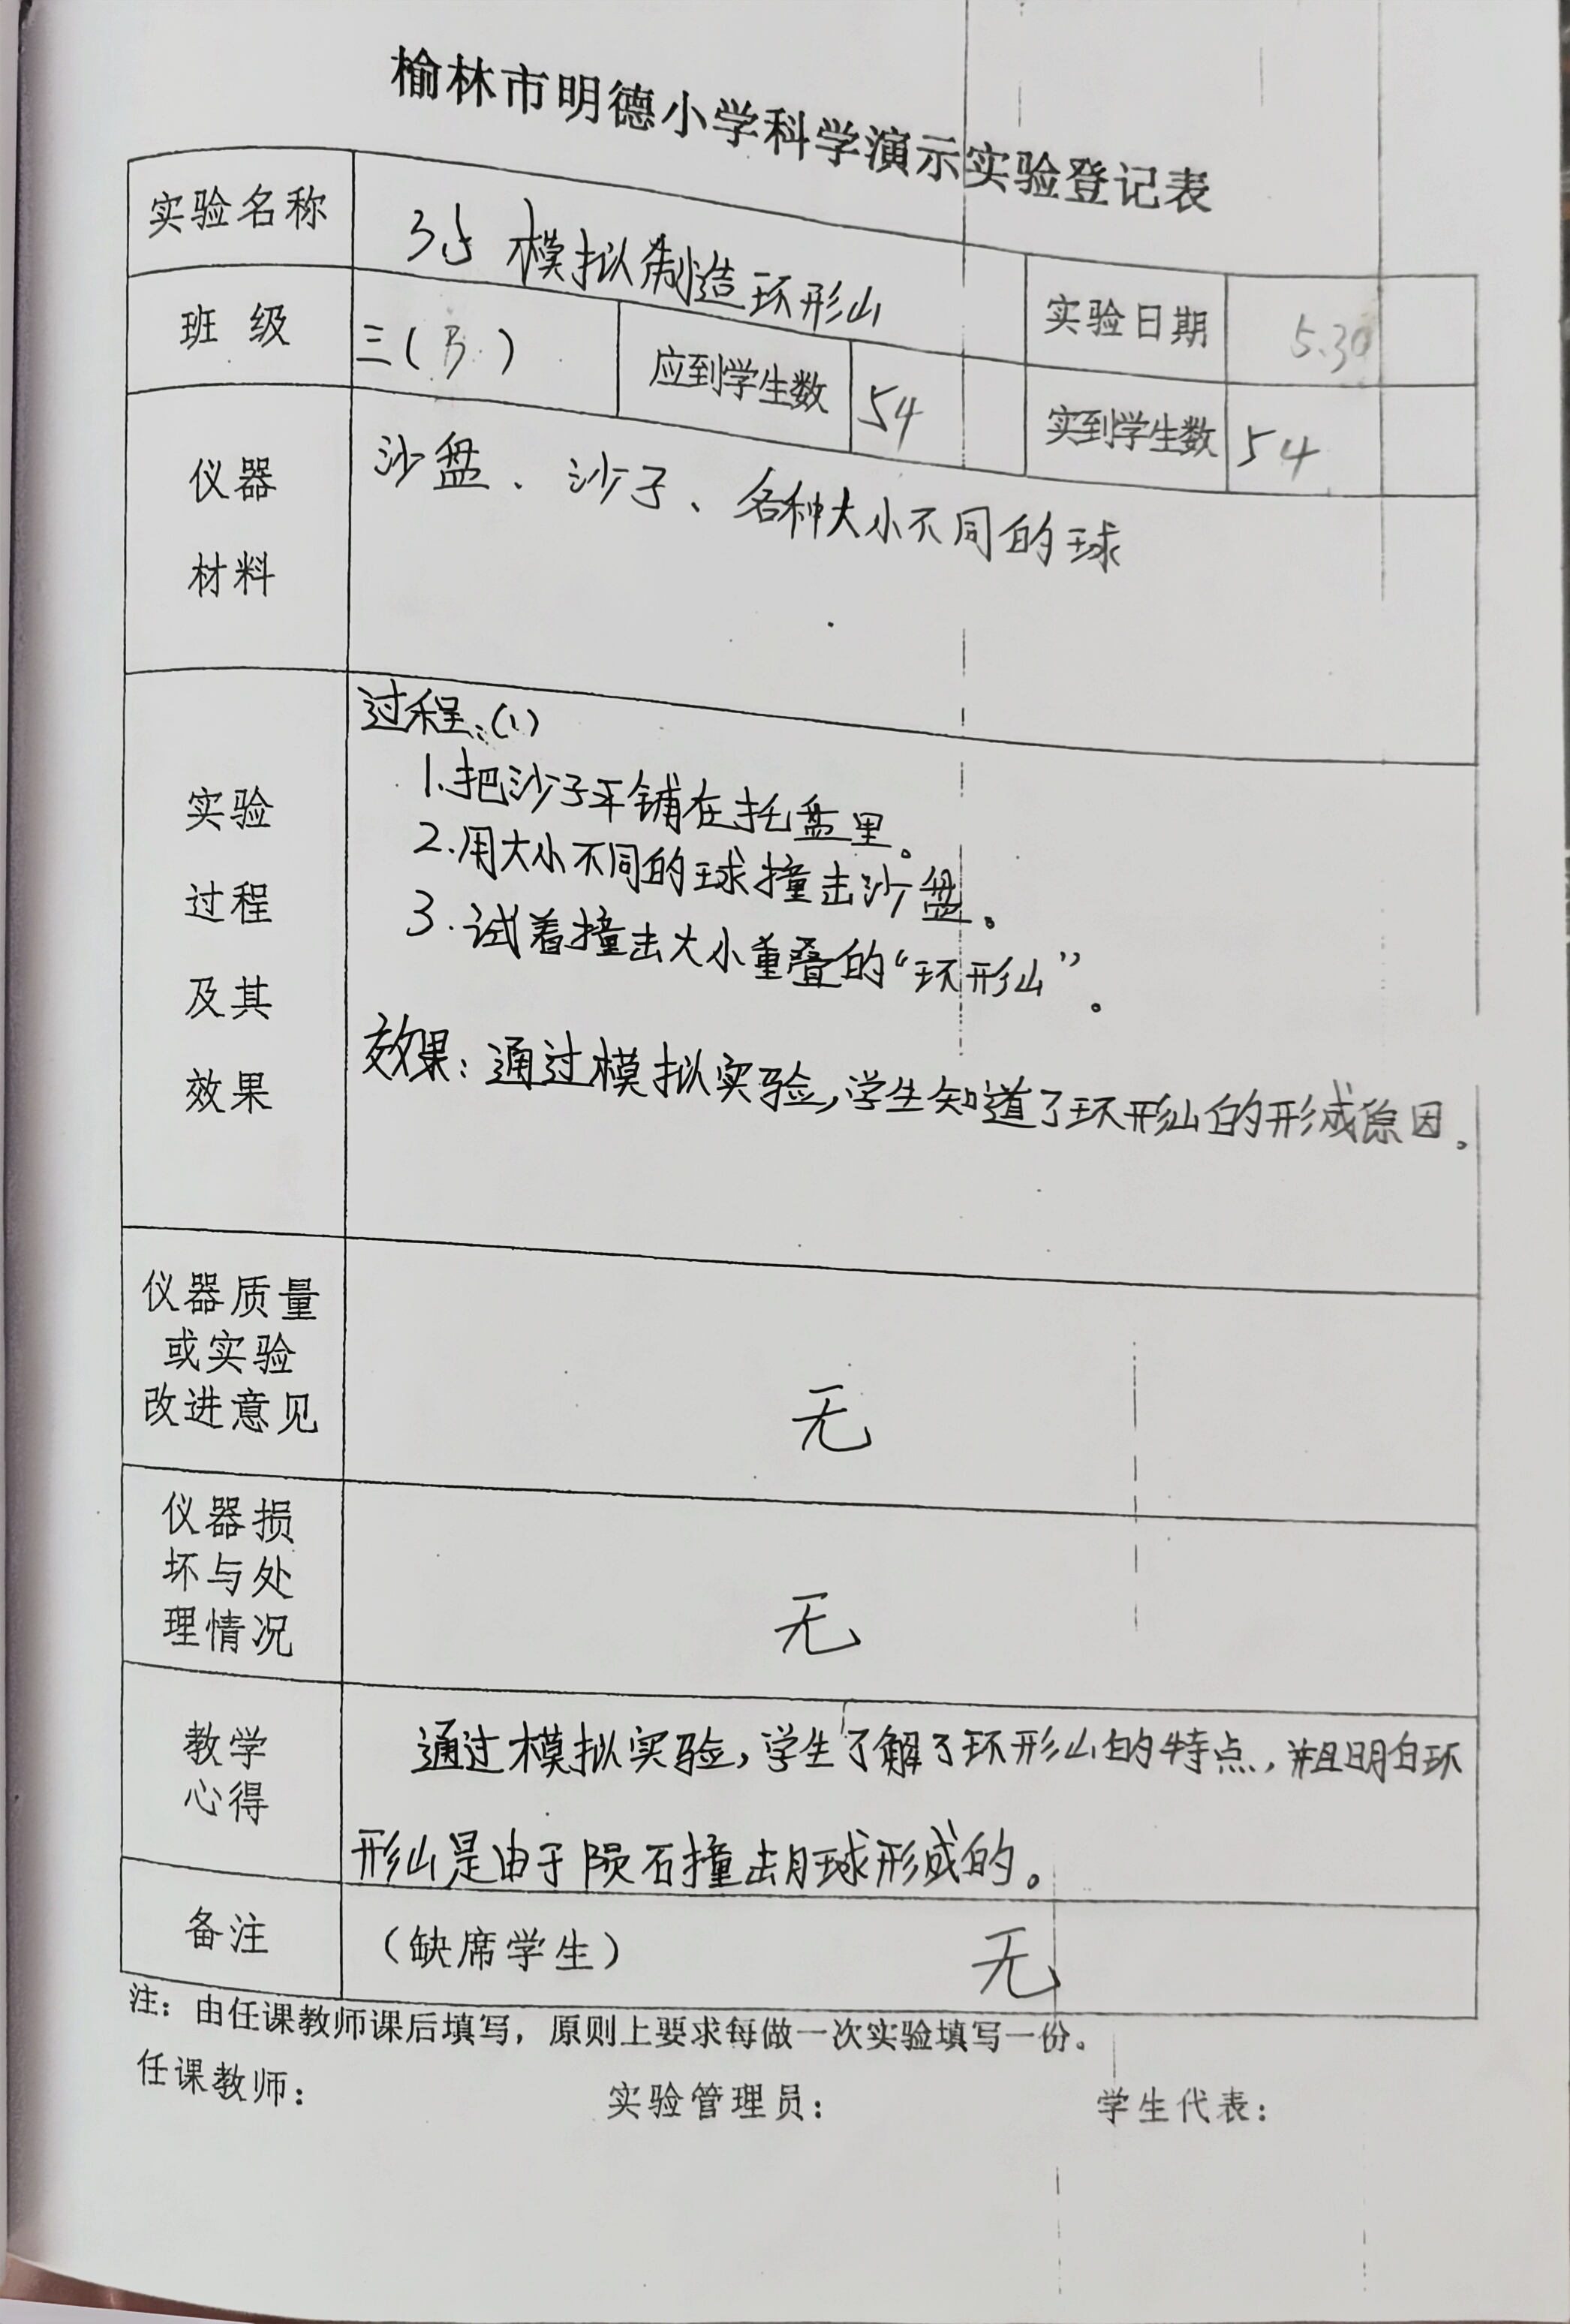 榆林市明德小学科学演示实验登记表
实验名称
模拟制造环形山
实验日期
5.30
班 级
三( )
应到学生数
54
实到学生数
54
仪器
材料
沙盘、沙子、各种大小不同的球
实验
过程
及其
效果
过程:(1)
1.把沙子平铺在托盘里。
2.用大小不同的球撞击沙盘。
3.试着撞击大小重叠的“环形山”。
效果:通过模拟实验,学生知道了环形山的形成原因。
仪器质量
或实验
改进意见
无
仪器损
坏与处
理情况
无
教学
心得
通过模拟实验,学生了解了环形山的特点,并且明白环
形山是由于陨石撞击月球形成的。
备注
(缺席学生)
无
注:由任课教师课后填写,原则上要求每做一次实验填写一份。
任课教师:
实验管理员:
学生代表: